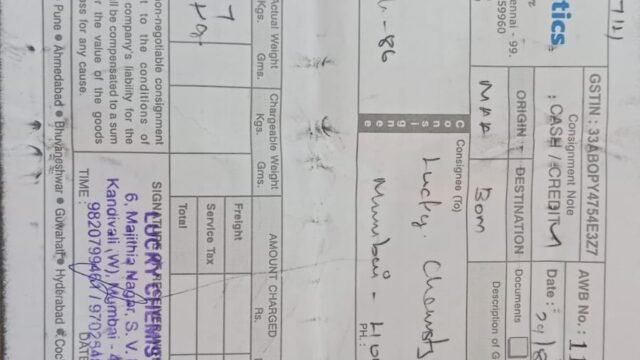 tics
ennai - 99.
59960
GSTIN : 33ABOPY4754E3Z7
Consignment Note
: CASH / CREDIT
AWB No. : 11
ORIGIN
DESTINATION
Date :
MAA
Bom
Documents
Description of G
- 86
Consignee
Consignee (To)
Lucky
Mumbai -
PH.:
Actual Weight
Kgs.
Gms.
Chargeable Weight
Kgs.
Gms.
AMOUNT CHARGED
Rs.
7
kg.
Freight
Service Tax
Total
non-negotiable consignment
t to the conditions of
company's liability for the
ill be compensated to a sum
r the value of the goods
ss for any cause.
LUCKY CHEMIST
6, Majithia Nagar, S. V.
Kandivali (W), Mumbai - 4
TIME :
DATE
Pune ● Ahmedabad ● Bhuvaneshwar ● Guwahati ● Hyderabad ● Coc